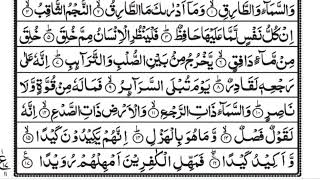 وَالسَّمَآءِ وَالطَّارِقِ ۝ وَمَآ اَدْرٰىكَ مَا الطَّارِقُ ۝ النَّجْمُ الثَّاقِبُ ۝
اِنْ كُلُّ نَفْسٍ لَّمَّا عَلَيْهَا حَافِظٌ ۝ فَلْيَنْظُرِ الْاِنْسَانُ مِمَّ خُلِقَ ۝ خُلِقَ
مِنْ مَّآءٍ دَافِقٍ ۝ يَّخْرُجُ مِنْۢ بَيْنِ الصُّلْبِ وَالتَّرَآئِبِ ۝ اِنَّهٗ عَلٰى
رَجْعِهٖ لَقَادِرٌ ۝ يَوْمَ تُبْلَى السَّرَآئِرُ ۝ فَمَا لَهٗ مِنْ قُوَّةٍ وَّلَا
نَاصِرٍ ۝ وَالسَّمَآءِ ذَاتِ الرَّجْعِ ۝ وَالْاَرْضِ ذَاتِ الصَّدْعِ ۝ اِنَّهٗ
لَقَوْلٌ فَصْلٌ ۝ وَّمَا هُوَ بِالْهَزْلِ ۝ اِنَّهُمْ يَكِيْدُوْنَ كَيْدًا ۝
وَّاَكِيْدُ كَيْدًا ۝ فَمَهِّلِ الْكٰفِرِيْنَ اَمْهِلْهُمْ رُوَيْدًا ۝